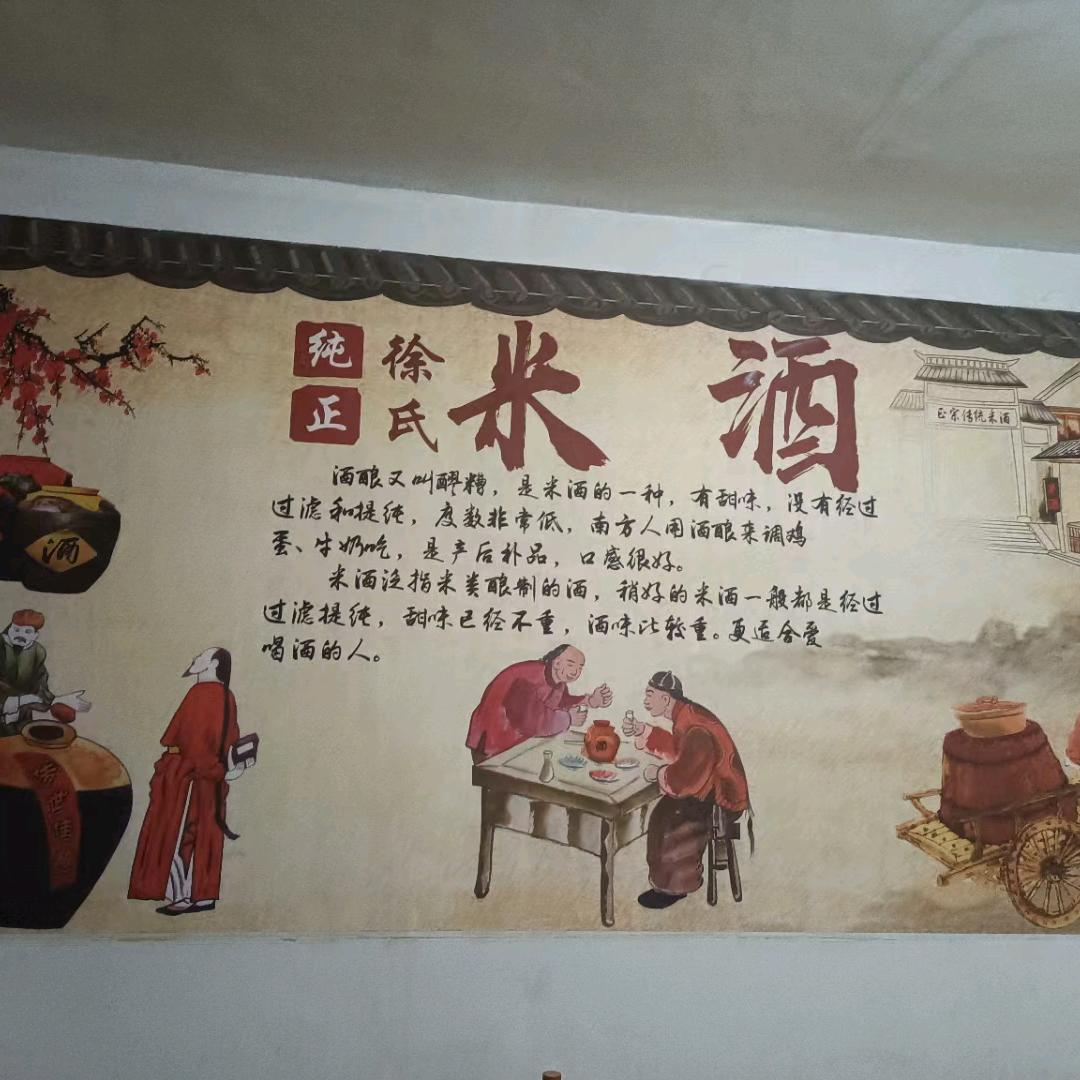 纯正
徐氏
米酒
酒酿又叫醪糟，是米酒的一种，有甜味，没有经过
过滤和提纯，度数非常低，南方人用酒酿来调鸡
蛋、牛奶吃，是产后补品，口感很好。
米酒泛指米类酿制的酒，稍好的米酒一般都是经过
过滤提纯，甜味已经不重，酒味比较重。更适合爱
喝酒的人。
正宗传统米酒
酒